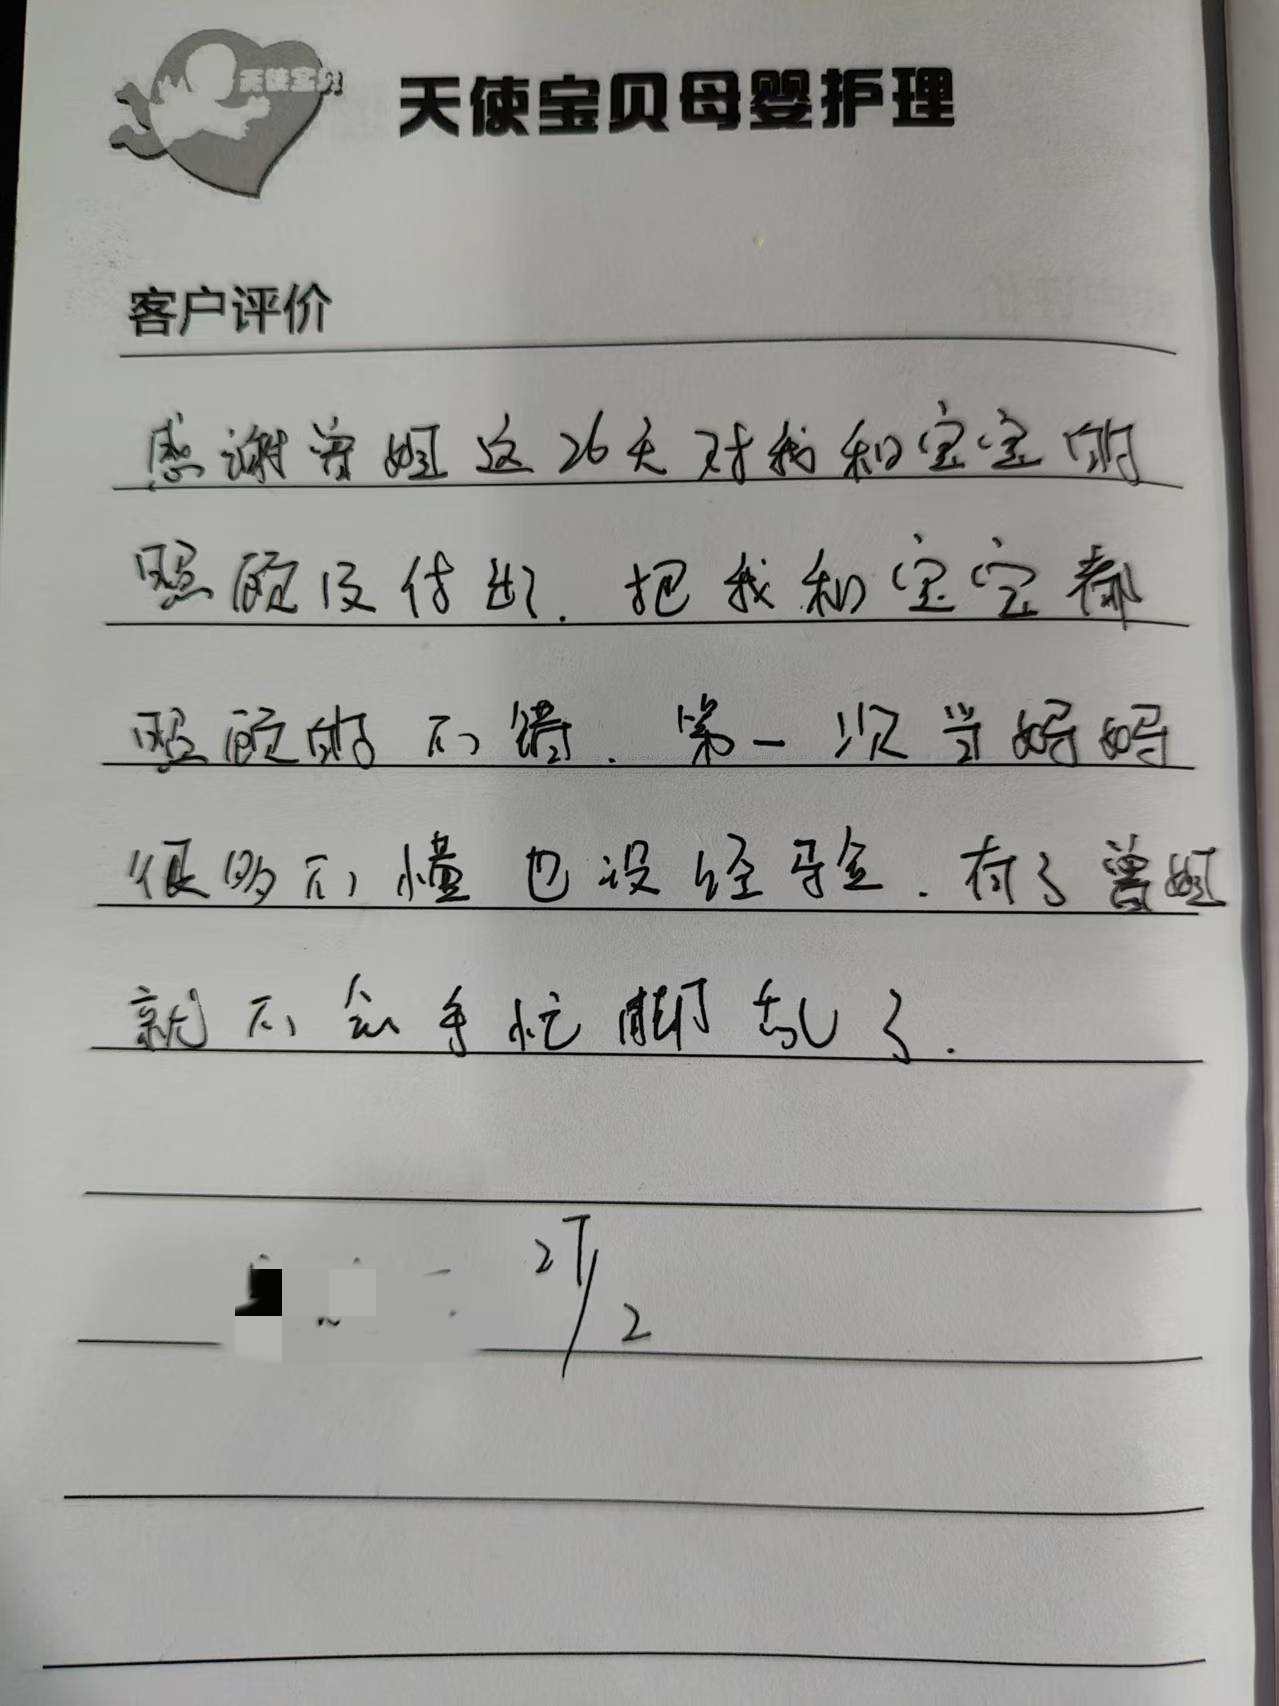 天使宝贝
天使宝贝母婴护理
客户评价
感谢曾姐这26天对我和宝宝的
照顾及付出.把我和宝宝都
照顾的不错.第一次当妈妈
很多不懂也没经验.有了曾姐
就不会手忙脚乱了.
27/2